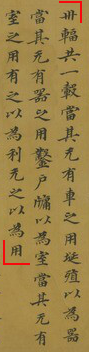 卅輻共一轂當其无有車之用埏殖以為器
當其无有器之用鑿戶牖以為室當其无有
室之用有之以為利无之以為用